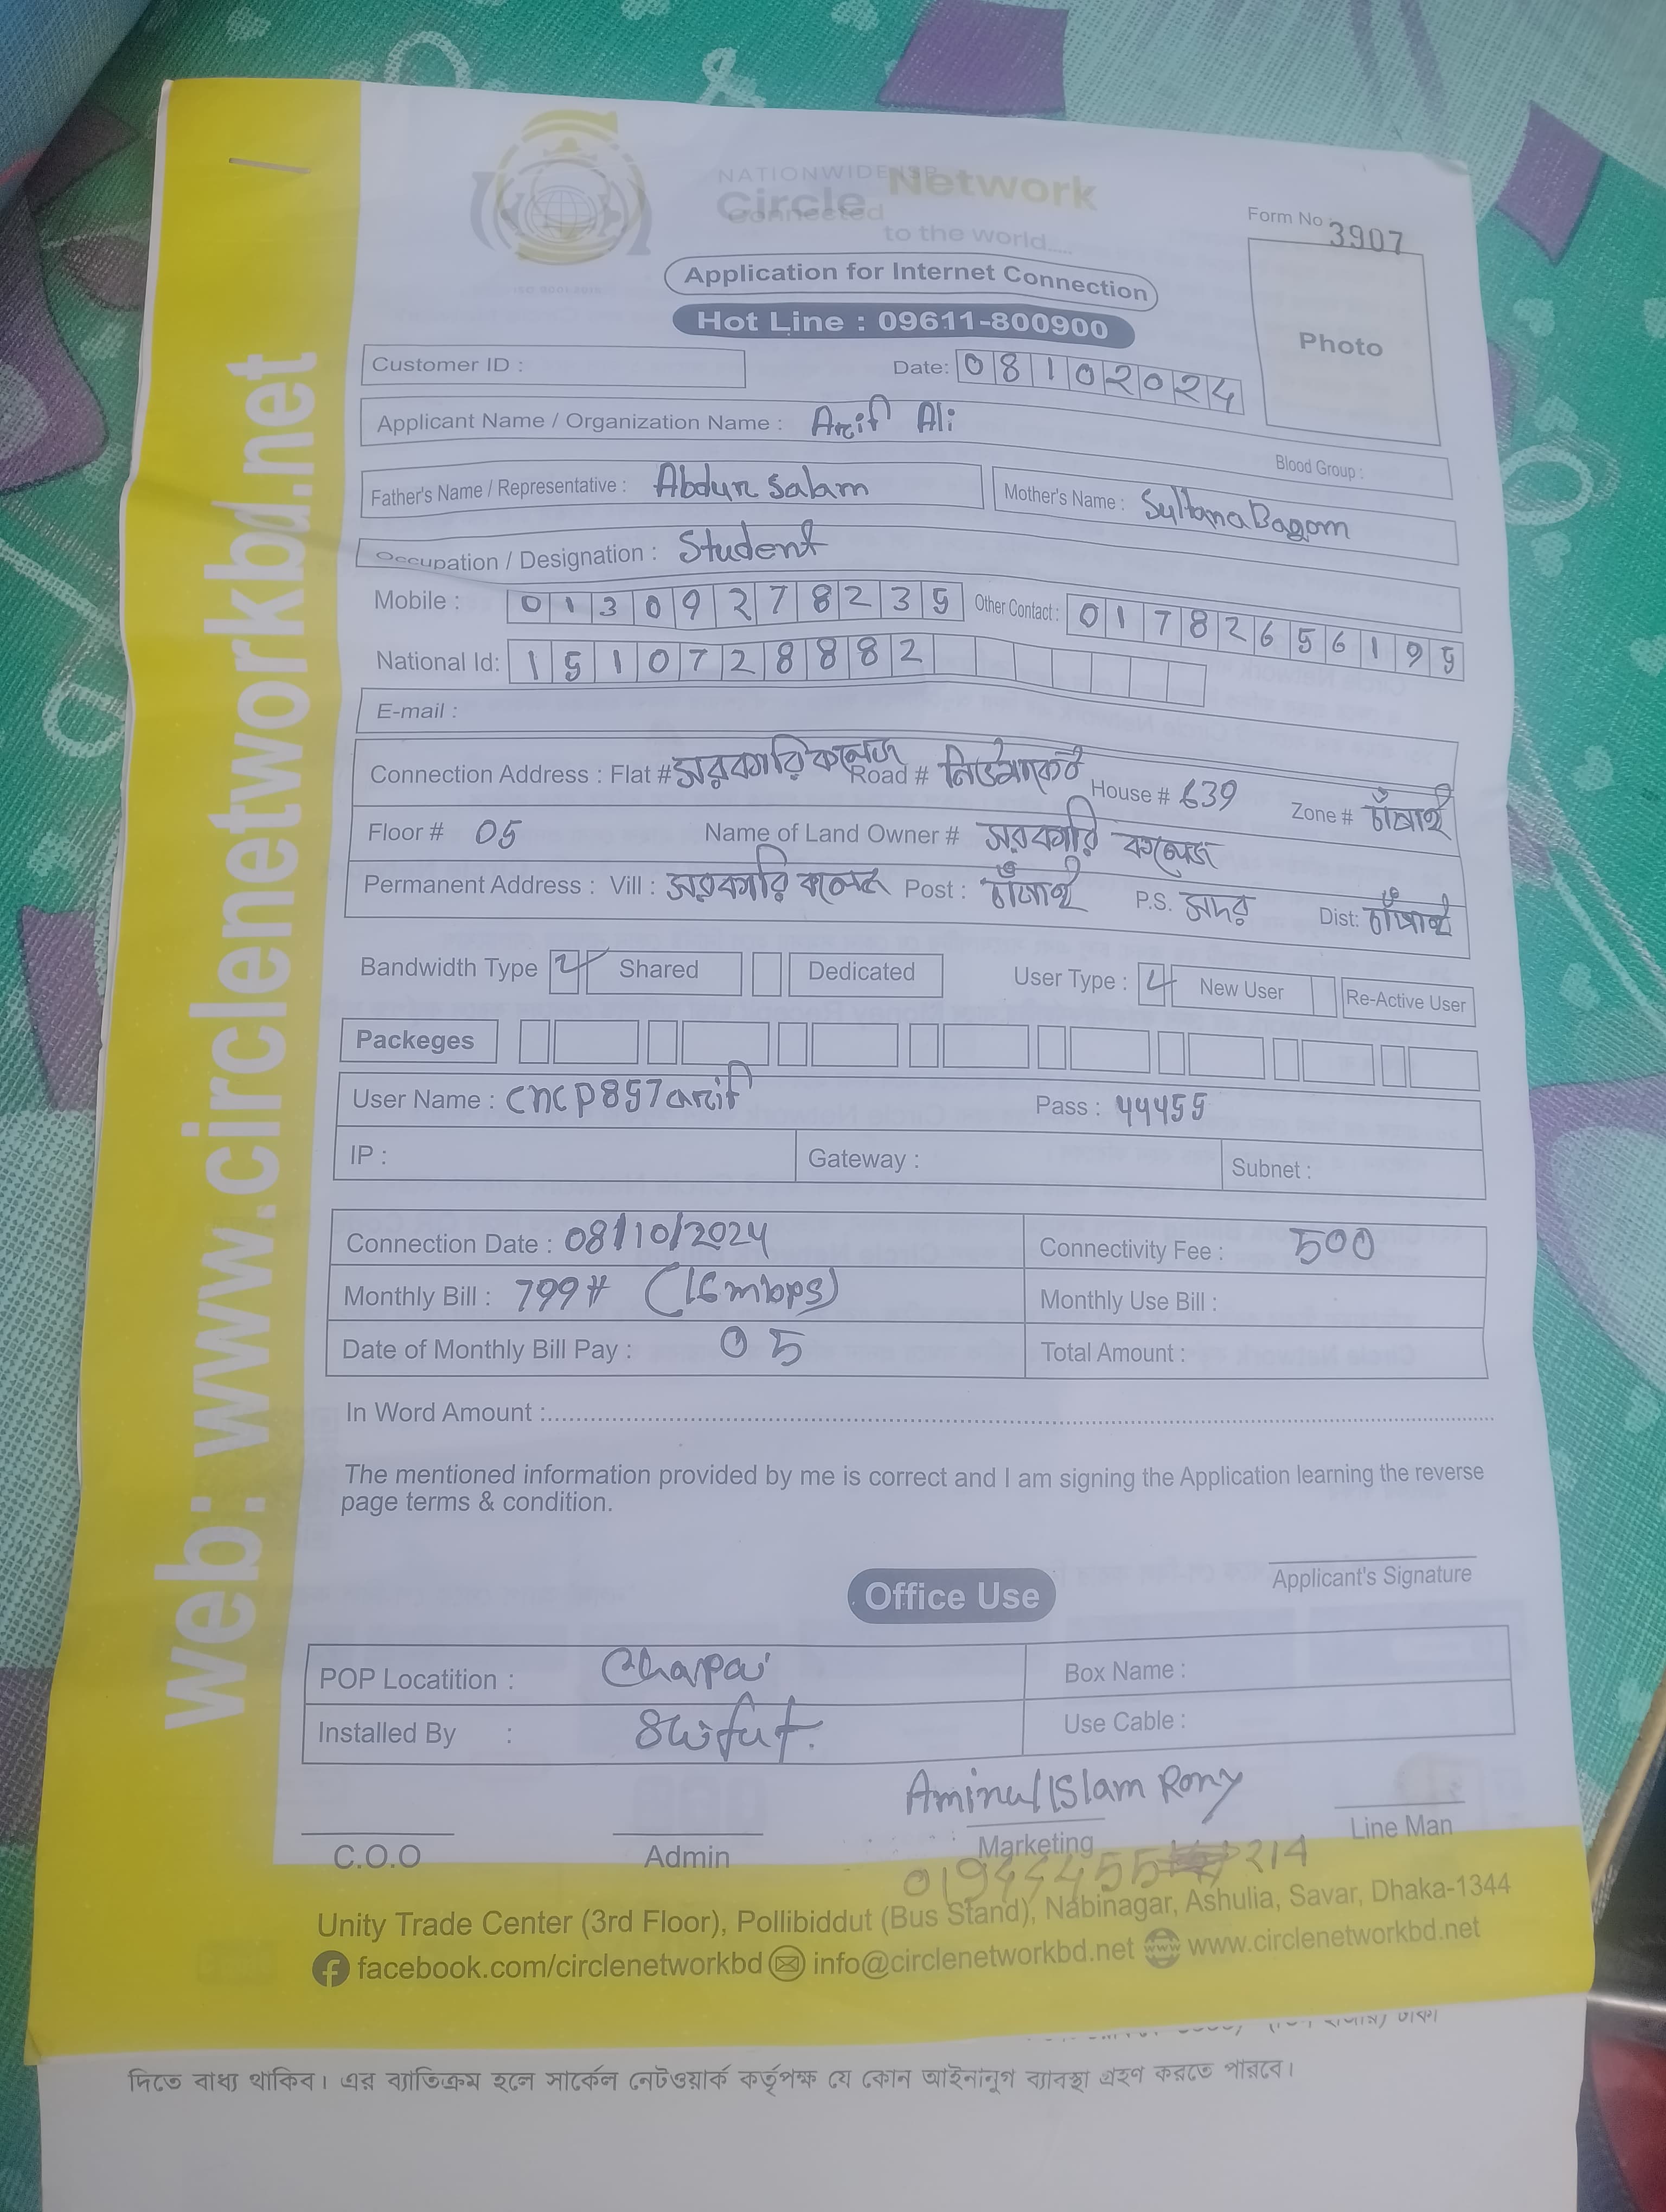 NATIONWIDE ISP
Circle Network
Connected
to the world.....
Form No : 3907
Application for Internet Connection
Hot Line : 09611-800900
Photo
Customer ID :
Date: 08102024
Applicant Name / Organization Name : Arif Ali
Blood Group :
Father's Name / Representative : Abdur Salam Mother's Name : Sultana Bagom
Occupation / Designation : Student
Mobile : 01309278235 Other Contact : 01782656195
National Id: 1510728882
E-mail :
Connection Address : Flat # সরকারি কলেজ Road # নিউমার্কেট House # 639 Zone #
Floor # 05 Name of Land Owner # সরকারি কলেজ
Permanent Address : Vill : সরকারি কলেজ Post : P.S. সদর Dist:
Bandwidth Type Shared Dedicated User Type : New User Re-Active User
Packeges
User Name : cncp857arif Pass : 44455
IP : Gateway : Subnet :
Connection Date : 08/10/2024 Connectivity Fee : 500
Monthly Bill : 799# (16mbps) Monthly Use Bill :
Date of Monthly Bill Pay : 05 Total Amount :
In Word Amount :
The mentioned information provided by me is correct and I am signing the Application learning the reverse
page terms & condition.
Applicant's Signature
Office Use
POP Locatition : Chapai Box Name :
Installed By : Use Cable :
Aminul Islam Rony
C.O.O Admin Marketing Line Man
Unity Trade Center (3rd Floor), Pollibiddut (Bus Stand), Nabinagar, Ashulia, Savar, Dhaka-1344
facebook.com/circlenetworkbd info@circlenetworkbd.net www.circlenetworkbd.net
web: www.circlenetworkbd.net
দিতে বাধ্য থাকিব। এর ব্যতিক্রম হলে সার্কেল নেটওয়ার্ক কর্তৃপক্ষ যে কোন আইনানুগ ব্যাবস্থা গ্রহণ করতে পারবে।